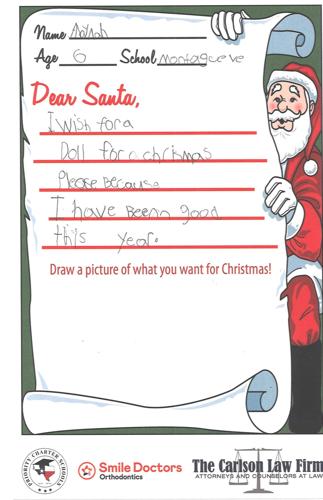 Name
Age 6 School Montague ve
Dear Santa,
I wish for a
Doll for a chrismas
Please Because
I have Been good
this year.
Draw a picture of what you want for Christmas!
PRIORITY CHARTER SCHOOLS
Smile Doctors
Orthodontics
The Carlson Law Firm
ATTORNEYS AND COUNSELORS AT LAW